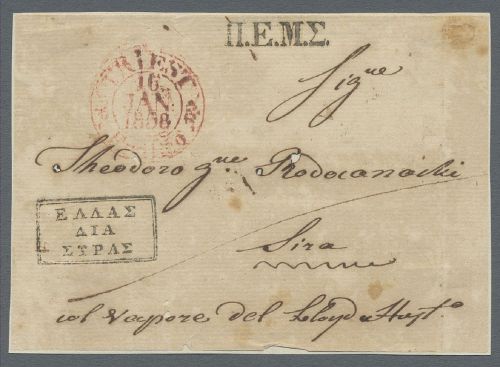 Π.Ε.Μ.Σ.
TRIEST
16
JAN
1838
Sig.re
Theodoro q.m Rodocanachi
ΕΛΛΑΣ
ΔΙΑ
ΣΥΡΑΣ
Sira
col Vapore del Lloyd Aust.o